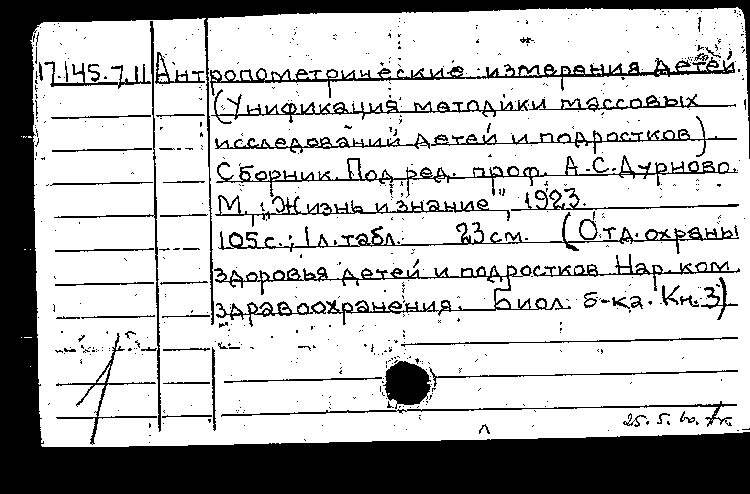 17.145.7.11 Антропометрические измерения детей.
(Унификация методики массовых
исследований детей и подростков).
Сборник. Под ред. проф. А.С.Дурново.
М., „Жизнь и знание", 1923.
105с.; 1л.табл. 23см. (Отд.охраны
здоровья детей и подростков Нар.ком.
здравоохранения. Биол. б-ка. Кн.3)
25.5.60.